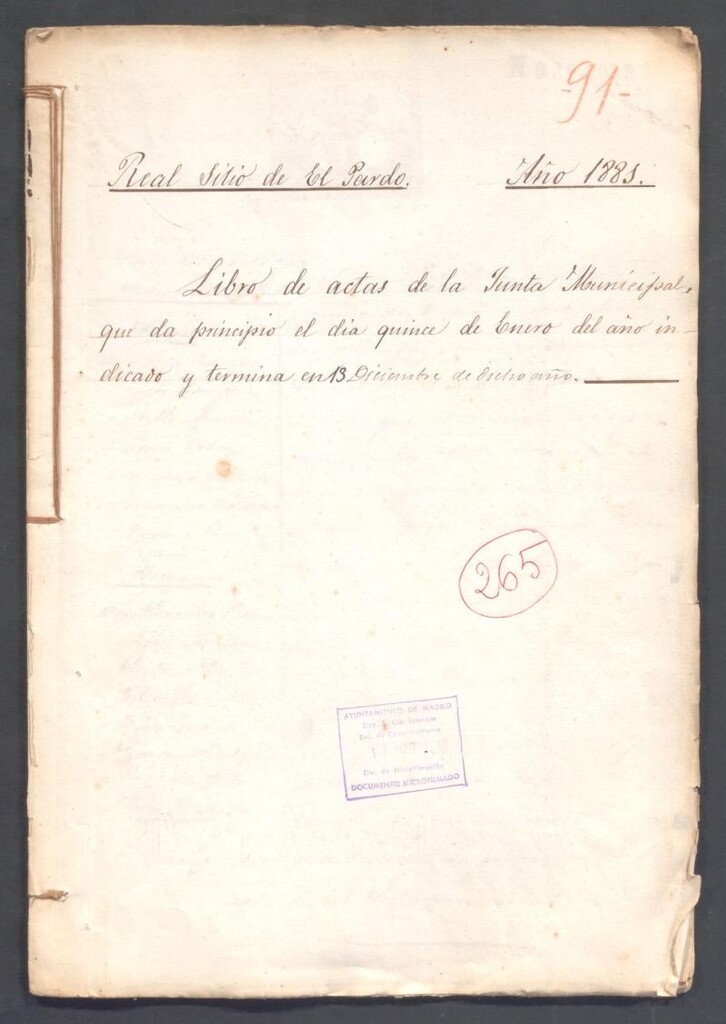 -91-
Real Sitio de El Pardo. Año 1885.
Libro de actas de la Junta Municipal,
que da principio el dia quince de Enero del año in-
dicado y termina en 13 Diciembre de dicho año.
265
AYUNTAMIENTO DE MADRID
Div. de Microfilmación
DOCUMENTO MICROFILMADO